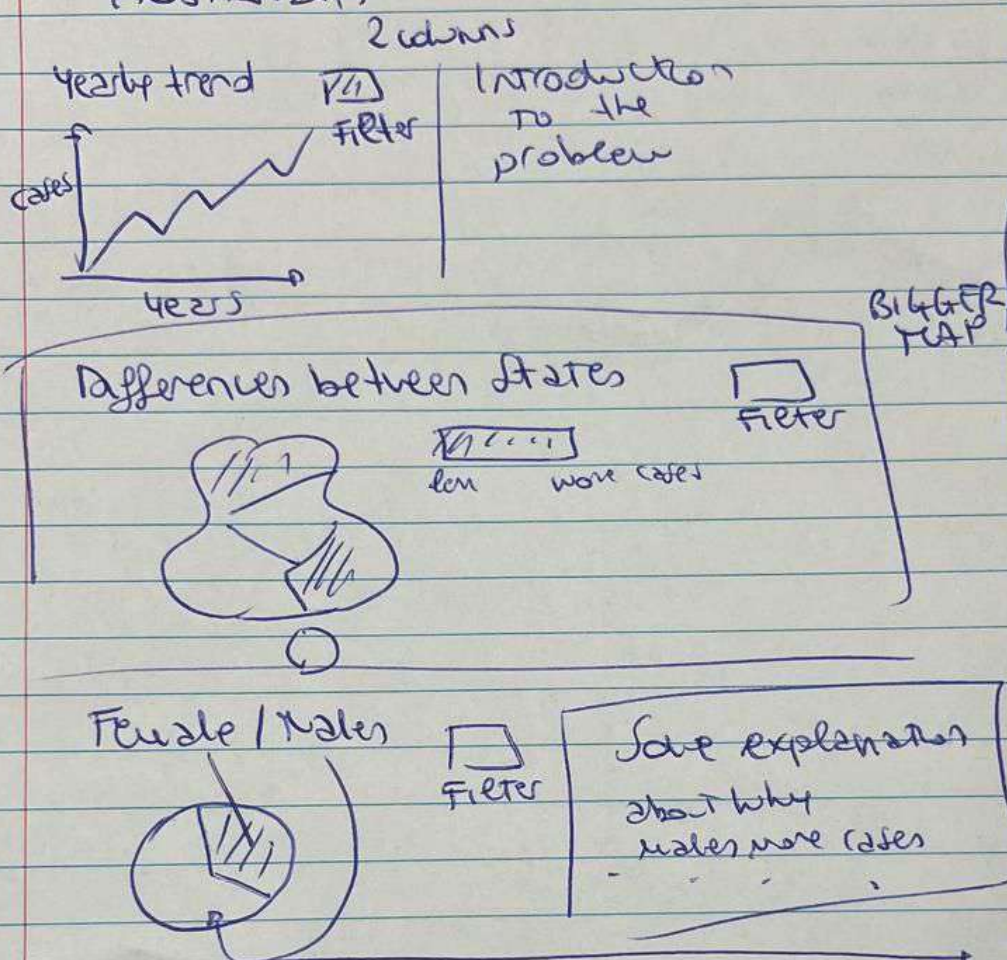 2 columns
Yearly trend
Filter
cases
years
Introduction
to the
problem
BIGGER
MAP
Differences between States
Filter
less more cases
Female / Males
Filter
Some explanation
about why
males more cases